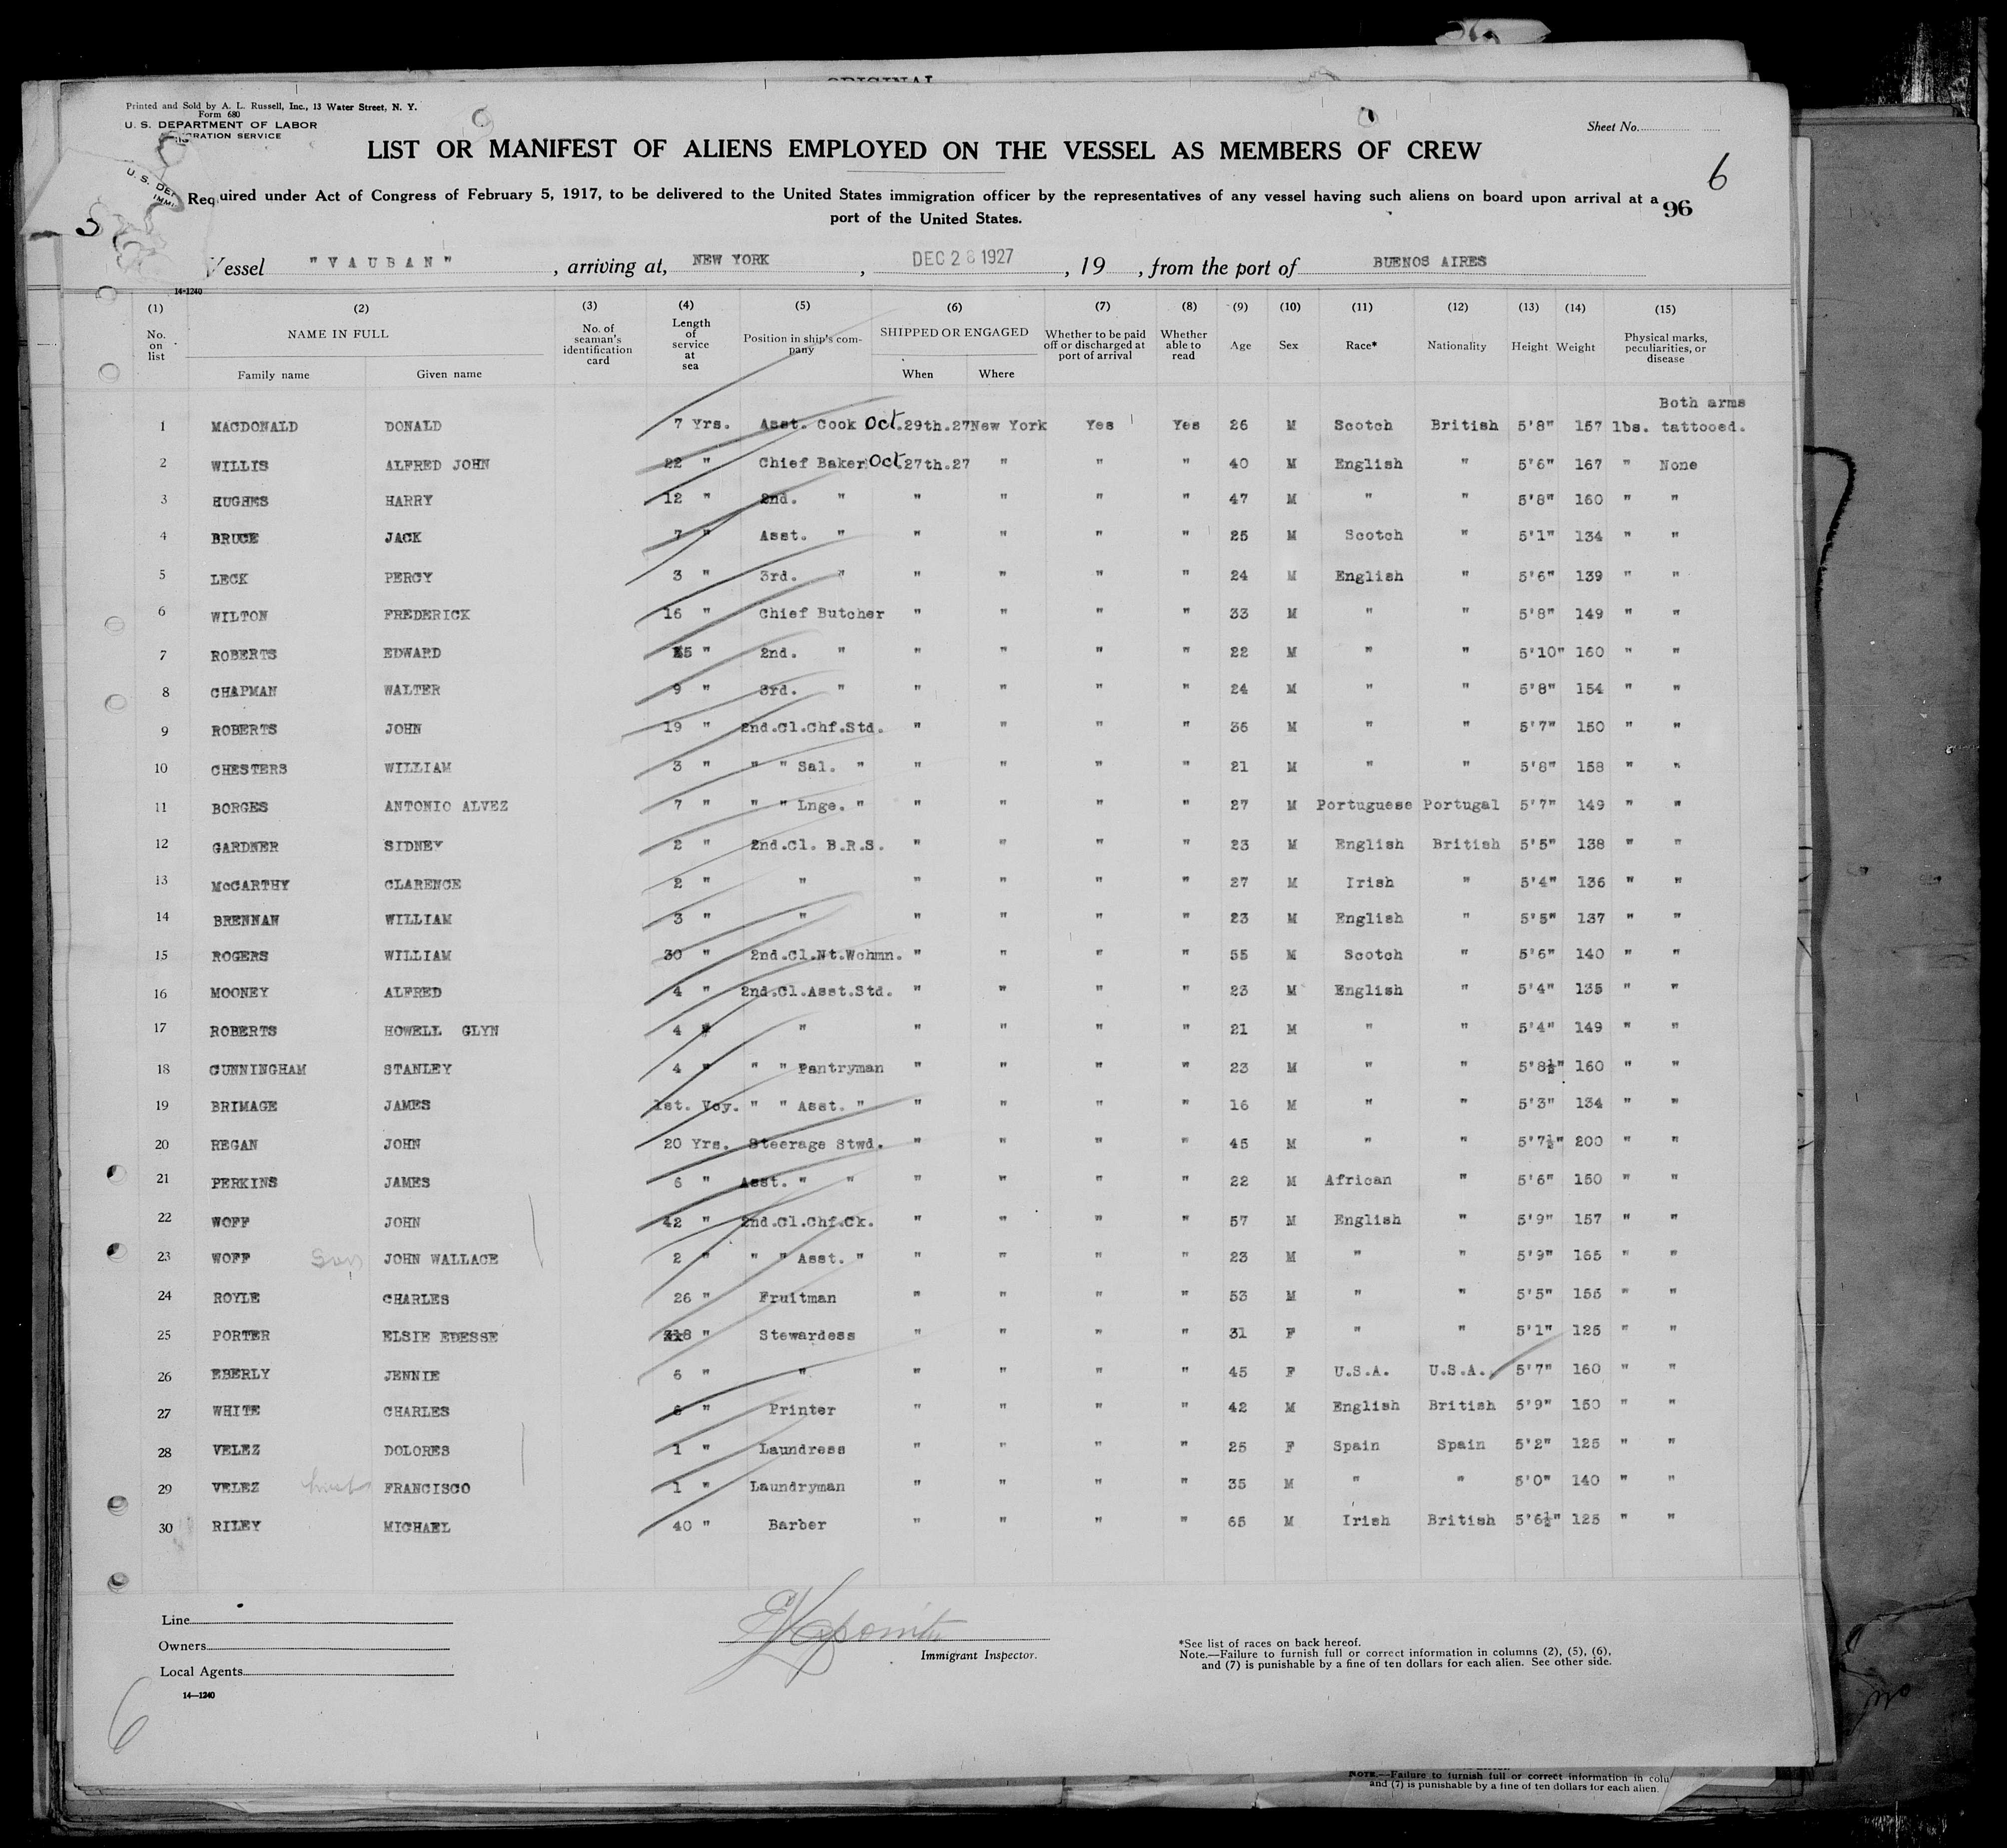 ORIGINAL
Printed and Sold by A. L. Russell, Inc., 13 Water Street, N. Y.
Form 680
U. S. DEPARTMENT OF LABOR
IMMIGRATION SERVICE
Sheet No.
LIST OR MANIFEST OF ALIENS EMPLOYED ON THE VESSEL AS MEMBERS OF CREW
6
Required under Act of Congress of February 5, 1917, to be delivered to the United States immigration officer by the representatives of any vessel having such aliens on board upon arrival at a
port of the United States.
96
Vessel "VAUBAN", arriving at, NEW YORK, DEC 28 1927, 19 , from the port of BUENOS AIRES
14-1240
(1) (2) (3) (4) (5) (6) (7) (8) (9) (10) (11) (12) (13) (14) (15)
No. on list NAME IN FULL Family name Given name No. of seaman's identification card Length of service at sea Position in ship's company SHIPPED OR ENGAGED When Where Whether to be paid off or discharged at port of arrival Whether able to read Age Sex Race* Nationality Height Weight Physical marks, peculiarities, or disease
1 MACDONALD DONALD 7 Yrs. Asst. Cook Oct.29th.27 New York Yes Yes 26 M Scotch British 5'8" 157 lbs. Both arms tattooed.
2 WILLIS ALFRED JOHN 22 " Chief Baker Oct.27th.27 " " " 40 M English " 5'6" 167 " None
3 HUGHES HARRY 12 " 2nd. " " " " " 47 M " " 5'8" 160 " "
4 BRUCE JACK 7 " Asst. " " " " " 25 M Scotch " 5'1" 134 " "
5 LECK PERCY 3 " 3rd. " " " " " 24 M English " 5'6" 139 " "
6 WILTON FREDERICK 16 " Chief Butcher " " " " 33 M " " 5'8" 149 " "
7 ROBERTS EDWARD 5 " 2nd. " " " " " 22 M " " 5'10" 160 " "
8 CHAPMAN WALTER 9 " 3rd. " " " " " 24 M " " 5'8" 154 " "
9 ROBERTS JOHN 19 " 2nd.Cl.Chf.Std. " " " " 36 M " " 5'7" 150 " "
10 CHESTERS WILLIAM 3 " " " Sal. " " " " " 21 M " " 5'8" 158 " "
11 BORGES ANTONIO ALVEZ 7 " " " Lnge. " " " " " 27 M Portuguese Portugal 5'7" 149 " "
12 GARDNER SIDNEY 2 " 2nd.Cl. B.R.S. " " " " 23 M English British 5'5" 138 " "
13 McCARTHY CLARENCE 2 " " " " " " 27 M Irish " 5'4" 136 " "
14 BRENNAN WILLIAM 3 " " " " " " 23 M English " 5'5" 137 " "
15 ROGERS WILLIAM 30 " 2nd.Cl.Nt.Wchmn. " " " " 55 M Scotch " 5'6" 140 " "
16 MOONEY ALFRED 4 " 2nd.Cl.Asst.Std. " " " " 23 M English " 5'4" 135 " "
17 ROBERTS HOWELL GLYN 4 " " " " " " 21 M " " 5'4" 149 " "
18 CUNNINGHAM STANLEY 4 " " " Pantryman " " " " 23 M " " 5'8½" 160 " "
19 BRIMAGE JAMES 1st. Voy. " " Asst. " " " " " 16 M " " 5'3" 134 " "
20 REGAN JOHN 20 Yrs. Steerage Stwd. " " " " 45 M " " 5'7½" 200 " "
21 PERKINS JAMES 6 " Asst. " " " " " " 22 M African " 5'6" 150 " "
22 WOFF JOHN 42 " 2nd.Cl.Chf.Ck. " " " " 57 M English " 5'9" 157 " "
23 WOFF son JOHN WALLACE 2 " " " Asst. " " " " " 23 M " " 5'9" 165 " "
24 ROYLE CHARLES 26 " Fruitman " " " " 53 M " " 5'5" 156 " "
25 PORTER ELSIE EDESSE 8 " Stewardess " " " " 31 F " " 5'1" 125 " "
26 EBERLY JENNIE 6 " " " " " " 45 F U.S.A. U.S.A. 5'7" 160 " "
27 WHITE CHARLES 6 " Printer " " " " 42 M English British 5'9" 150 " "
28 VELEZ DOLORES 1 " Laundress " " " " 25 F Spain Spain 5'2" 125 " "
29 VELEZ FRANCISCO 1 " Laundryman " " " " 35 M " " 5'0" 140 " "
30 RILEY MICHAEL 40 " Barber " " " " 65 M Irish British 5'6½" 125 " "
Line
Owners
Local Agents
14—1240
Immigrant Inspector.
*See list of races on back hereof.
Note.—Failure to furnish full or correct information in columns (2), (5), (6),
and (7) is punishable by a fine of ten dollars for each alien. See other side.
6
NOTE.—Failure to furnish full or correct information in colu
and (7) is punishable by a fine of ten dollars for each alien.